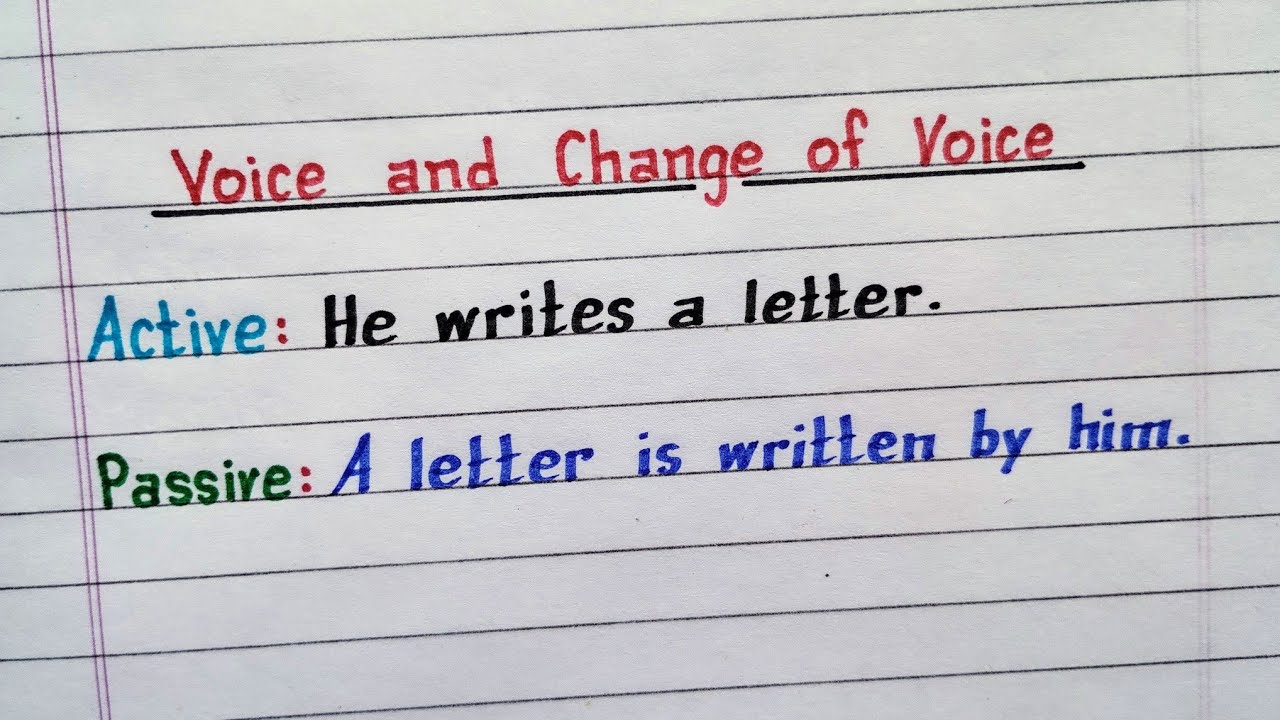 Voice and Change of Voice
Active: He writes a letter.
Passive: A letter is written by him.